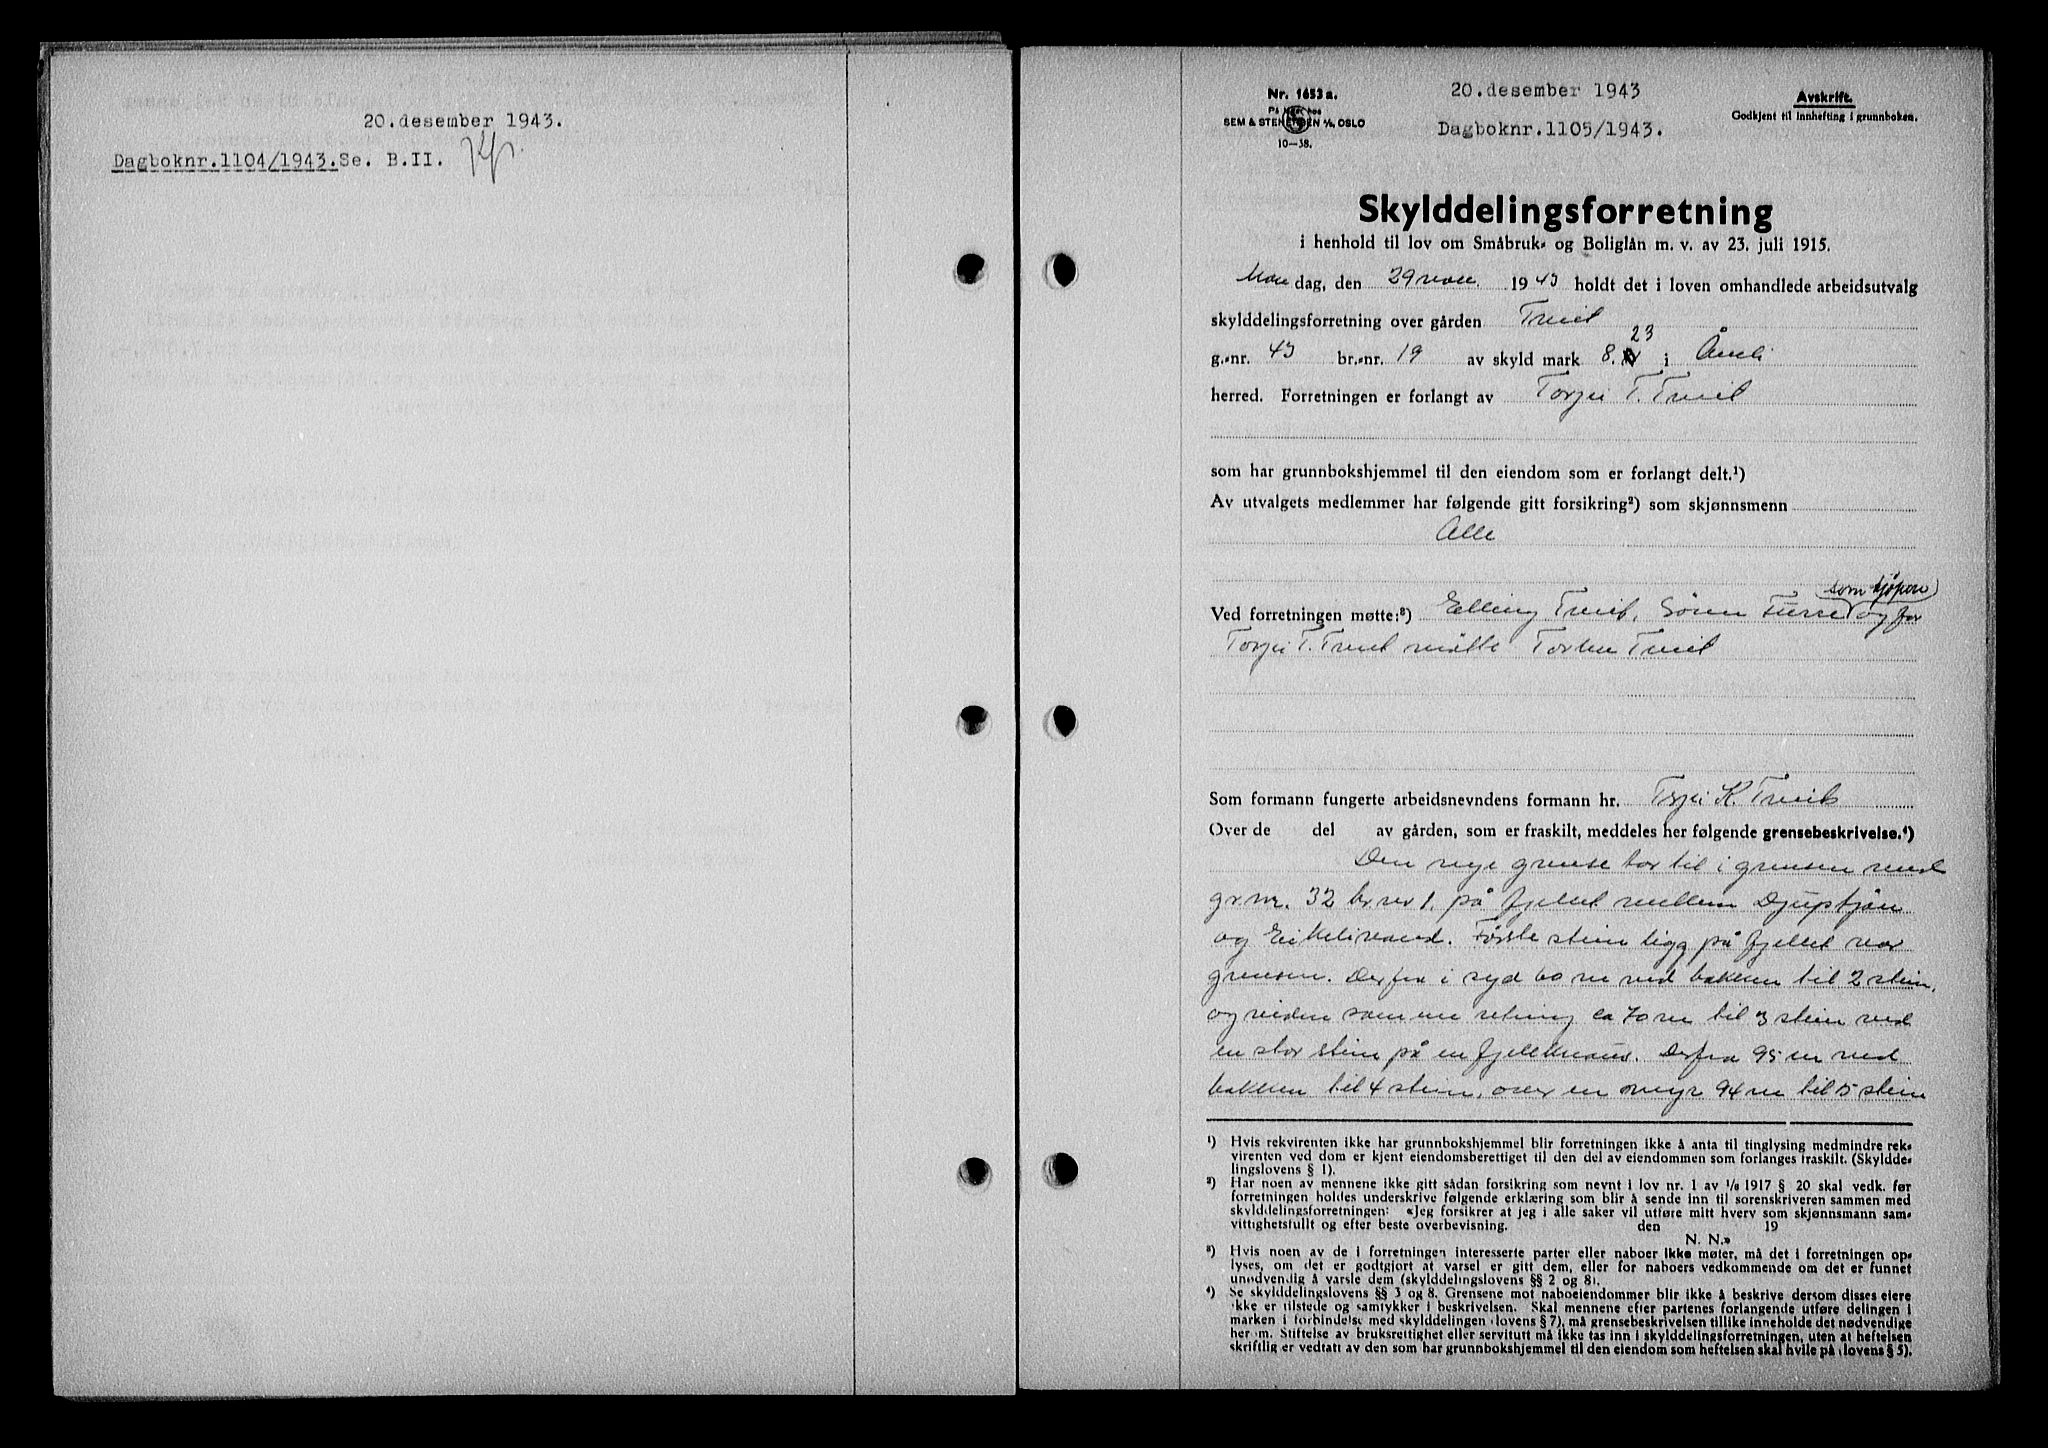 20.desember 1943.
Dagboknr.1104/1943.Se. B.II.
Nr. 1653 a.
SEM & STENERSEN A/S, OSLO
10-38.
20.desember 1943
Dagboknr.1105/1943.
Avskrift.
Godkjent til innhefting i grunnboken.
Skylddelingsforretning
i henhold til lov om Småbruk- og Boliglån m. v. av 23. juli 1915.
Mandag, den 29 nov. 1943 holdt det i loven omhandlede arbeidsutvalg
skylddelingsforretning over gården Tveit
23
g.-nr. 43 br.-nr. 19 av skyld mark 8. i Åmli
herred. Forretningen er forlangt av Torjei T. Tveit
som har grunnbokshjemmel til den eiendom som er forlangt delt.¹)
Av utvalgets medlemmer har følgende gitt forsikring²) som skjønnsmenn
Alle
som kjøpere
Ved forretningen møtte:³) Elling Tveit, Sören Furre og for
Torjei T. Tveit møtte Torleiv Tveit
Som formann fungerte arbeidsnevndens formann hr. Torjei K. Tveit
Over de del av gården, som er fraskilt, meddeles her følgende grensebeskrivelse.⁴)
Den nye grense tar til i grensen med
gr.nr. 32 br nr 1. på fjellet mellem Djupstjön
og Eikelivand. Förste stein ligg på fjellet ved
grensen. Derfra i syd 60 m ved bakken til 2 stein,
og viden samme retning ca 70 m til 3 stein ved
en stor stein på en fjellknaus. Derfra 95 m ved
bakken til 4 stein, over en myr 94 m til 5 stein
¹) Hvis rekvirenten ikke har grunnbokshjemmel blir forretningen ikke å anta til tinglysing medmindre rek-
virenten ved dom er kjent eiendomsberettiget til den del av eiendommen som forlanges fraskilt. (Skyldde-
lingslovens § 1).
²) Har noen av mennene ikke gitt sådan forsikring som nevnt i lov nr. 1 av 1/6 1917 § 20 skal vedk. før
forretningen holdes underskrive følgende erklæring som blir å sende inn til sorenskriveren sammen med
skylddelingsforretningen: «Jeg forsikrer at jeg i alle saker vil utføre mitt hverv som skjønnsmann sam-
vittighetsfullt og efter beste overbevisning. den 19
N. N.»
³) Hvis noen av de i forretningen interesserte parter eller naboer ikke møter, må det i forretningen op-
lyses, om det er godtgjort at varsel er gitt dem, eller for naboers vedkommende om det er funnet
unødvendig å varsle dem (skylddelingslovens §§ 2 og 8).
⁴) Se skylddelingslovens §§ 3 og 8. Grensene mot naboeiendommer blir ikke å beskrive dersom disses eiere
ikke er tilstede og samtykker i beskrivelsen. Skal mennene efter partenes forlangende utføre delingen i
marken i forbindelse med skylddelingen (lovens § 7), må grensebeskrivelsen tillike inneholde det nødvendige
her om. Stiftelse av bruksrettighet eller servitutt må ikke tas inn i skylddelingsforretningen, uten at heftelsen
skriftlig er vedtatt av den som har grunnbokshjemmel til den eiendom som heftelsen skal hvile på (lovens § 5).